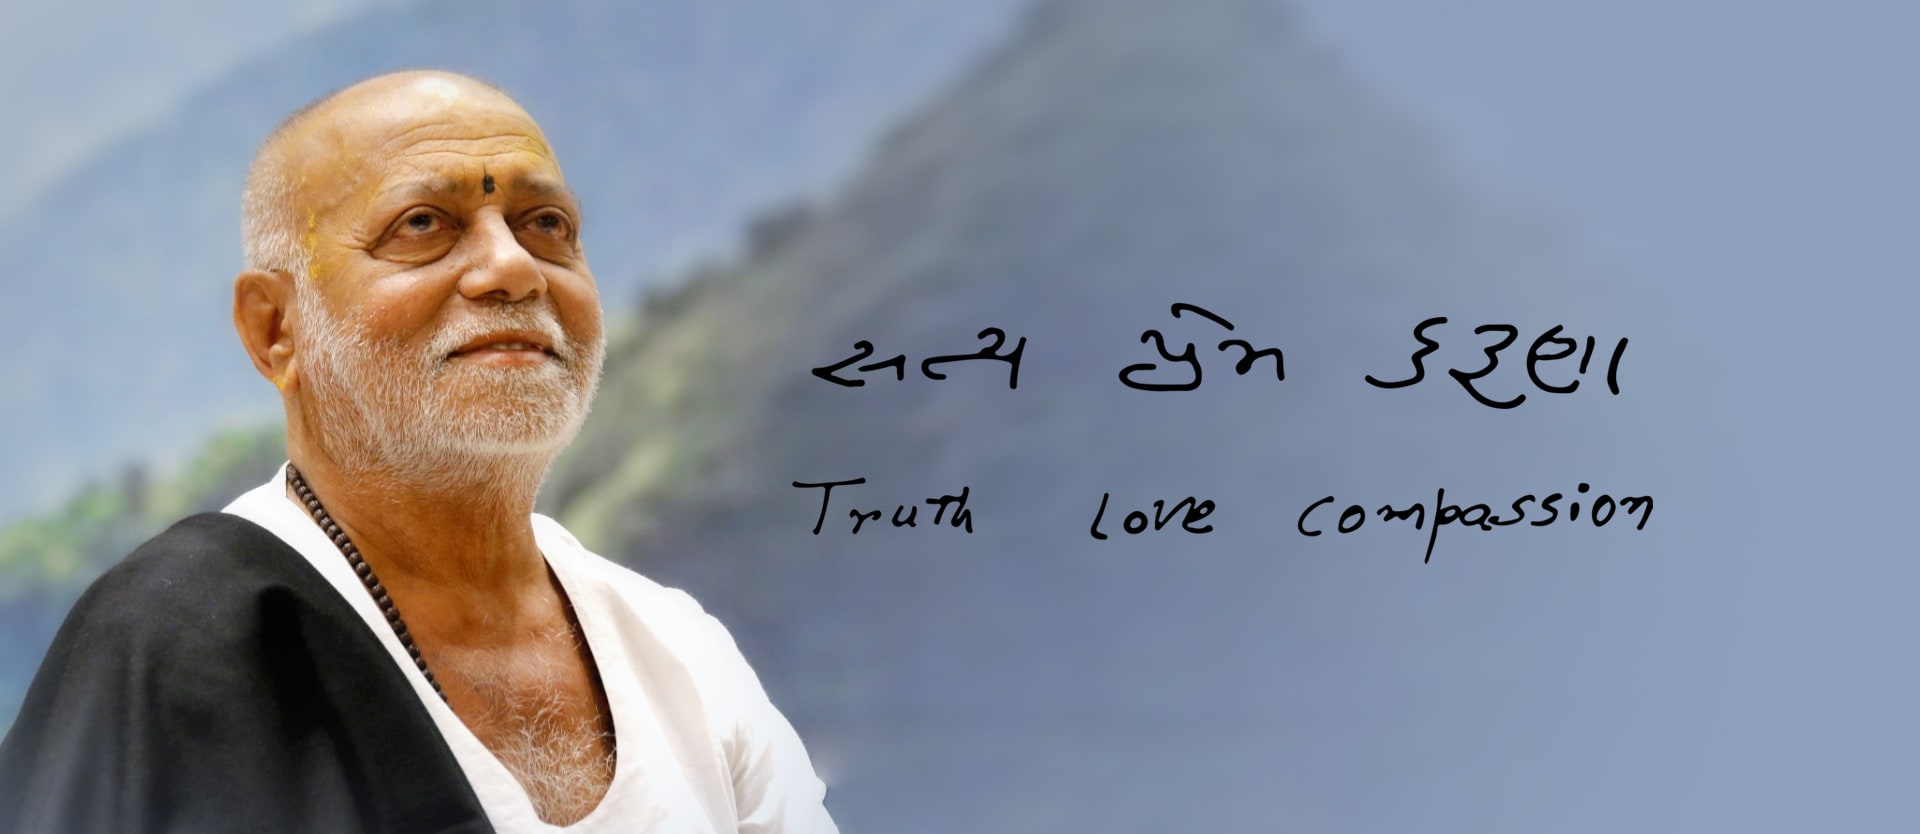 સત્ય પ્રેમ કરૂણા
Truth love compassion